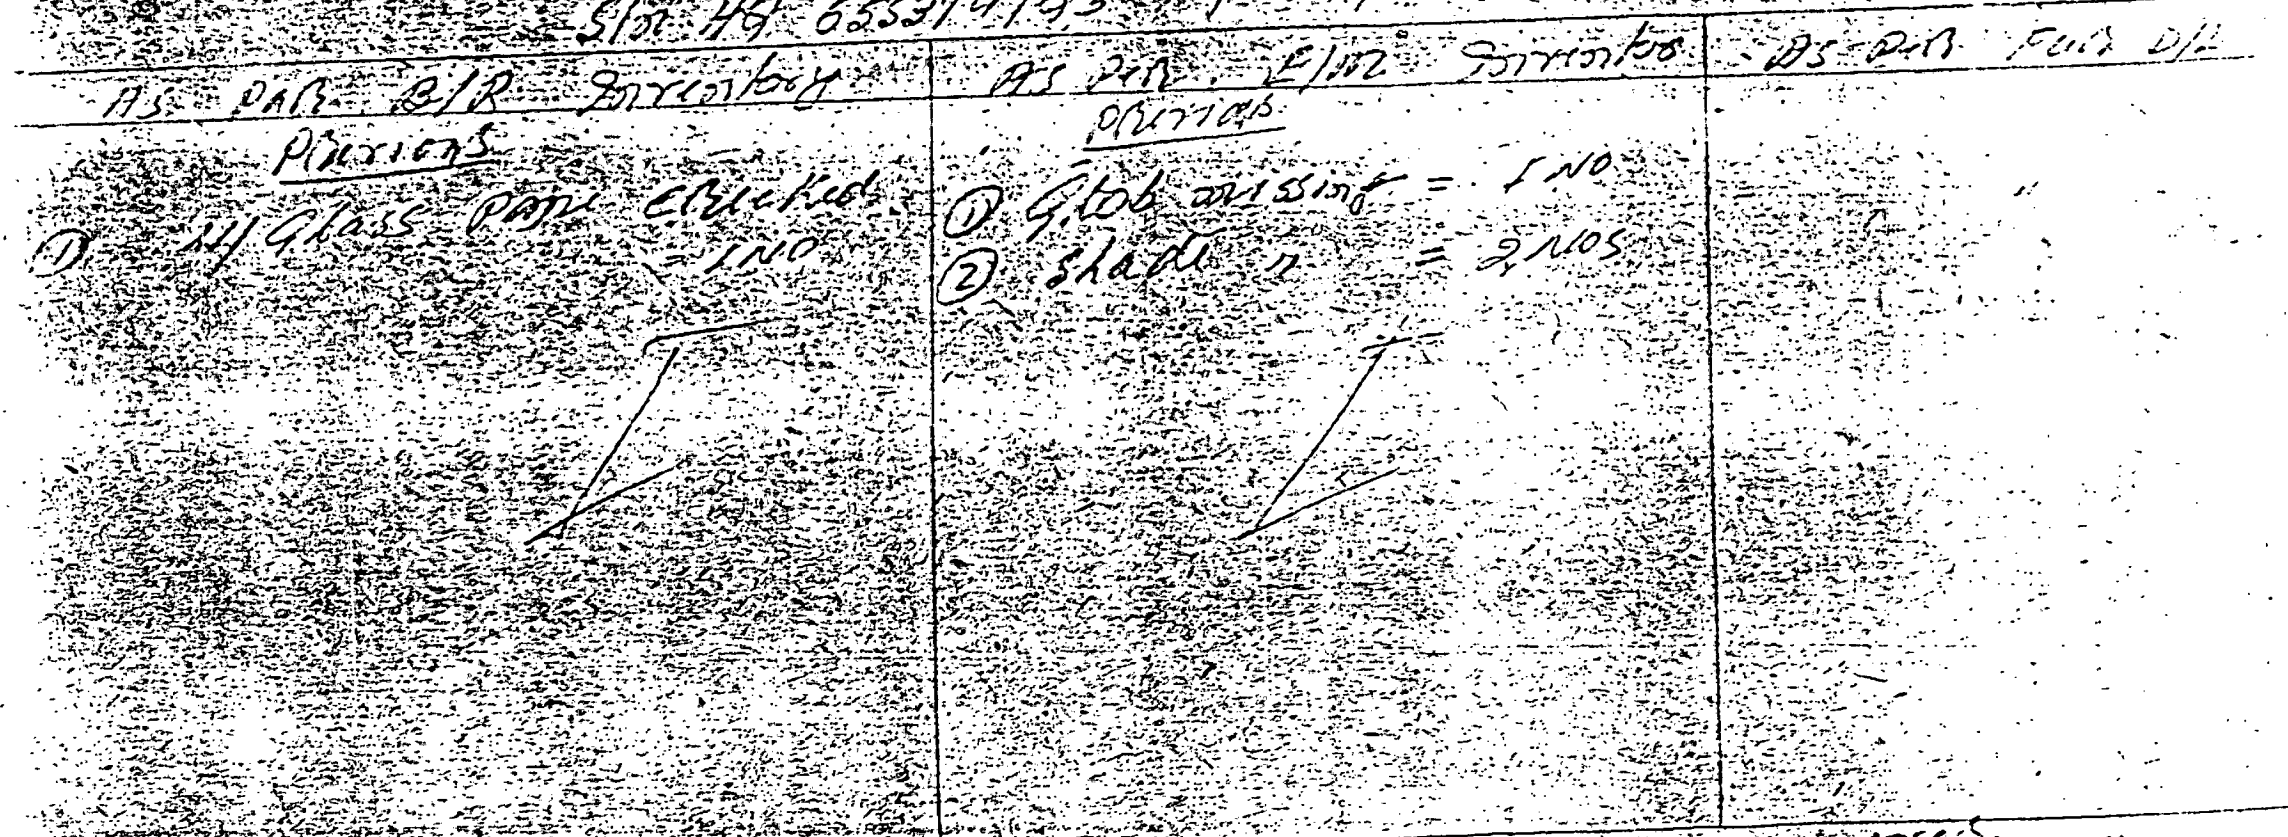 As PAR B/R Inventory
As PER E/M Inventro
As PER FUR D/L
Previons
① W/Glass Pane CRecked
= 1NO
Previos
① Glob missing = 1 NO
② Shade " = 2 NOS